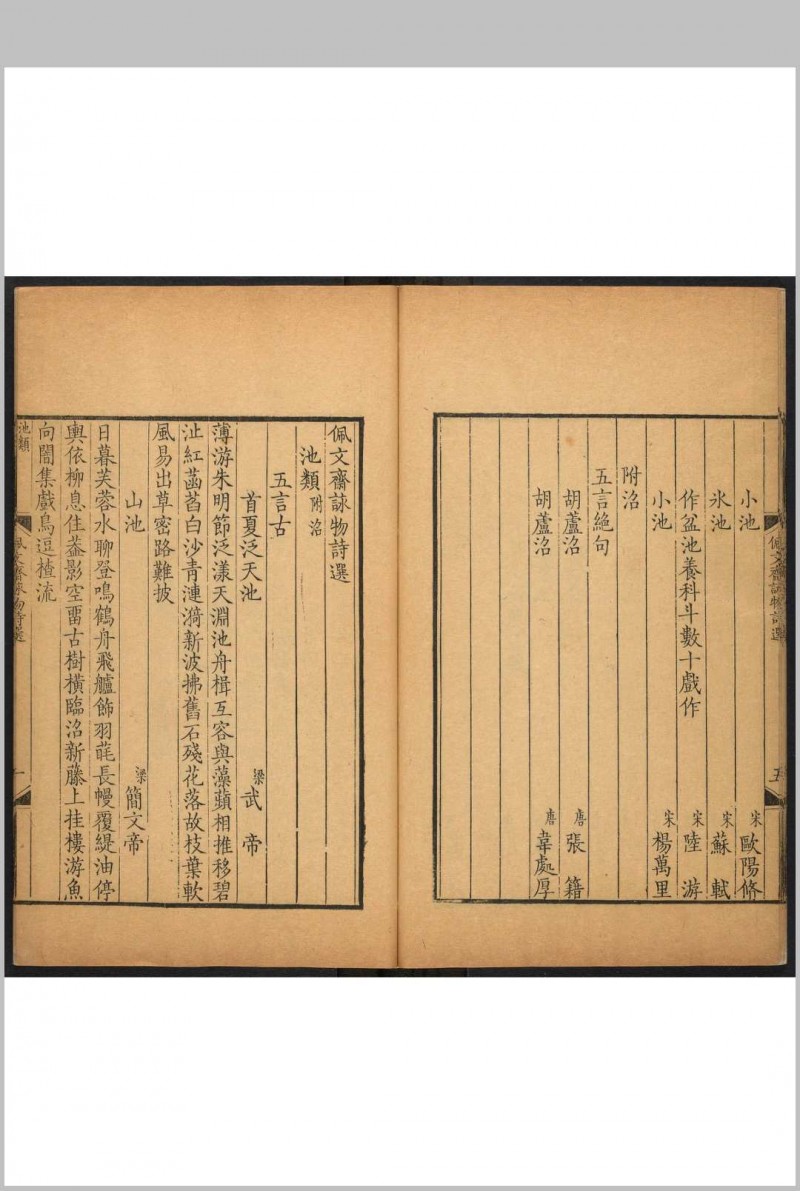 小池 宋 歐陽脩
氷池 宋 蘇軾
作盆池養科斗數十戲作 宋 陸游
小池 宋 楊萬里
附沼
五言絕句
胡蘆沼 唐 張籍
胡蘆沼 唐 韋處厚
佩文齋詠物詩選
池類 附沼
五言古
首夏泛天池 梁 武帝
薄游朱明節泛漾天淵池舟楫互容與藻蘋相推移碧
沚紅菡萏白沙青漣漪新波拂舊石殘花落故枝葉軟
風易出草密路難披
山池 梁 簡文帝
日暮芙蓉水聊登鳴鶴舟飛艫飾羽眊長幔覆緹油停
輿依柳息住葢影空畱古樹橫臨沼新藤上挂樓游魚
向闇集戲鳥逗楂流
池類 佩文齋詠物詩選 一